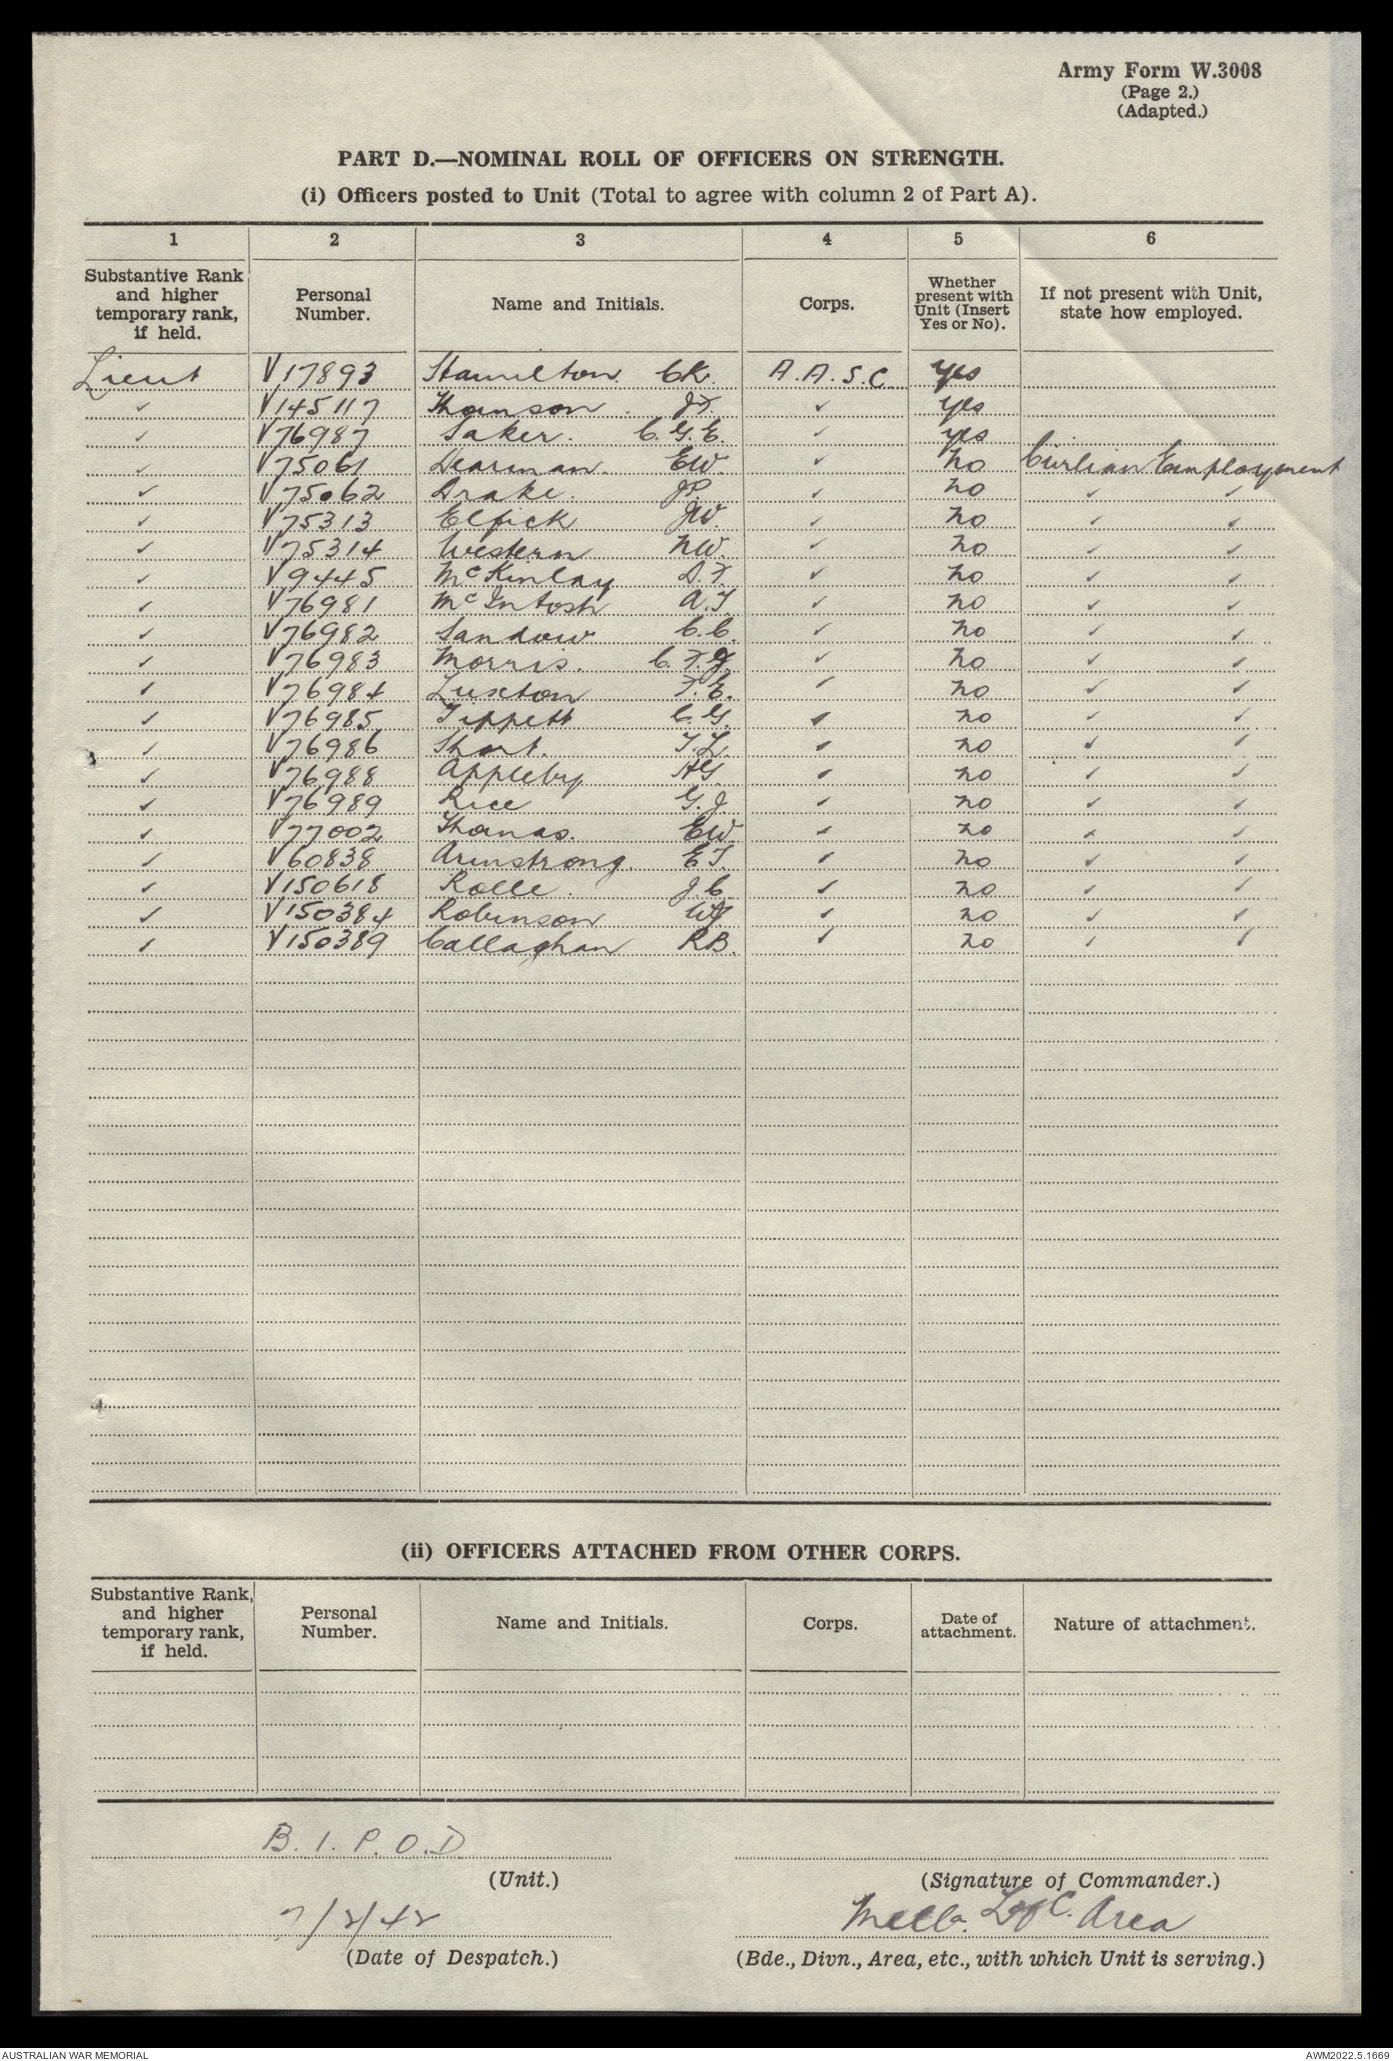 Army Form W.3008
(Page 2.)
(Adapted.)
PART D.—NOMINAL ROLL OF OFFICERS ON STRENGTH.
(i) Officers posted to Unit (Total to agree with column 2 of Part A).
1 2 3 4 5 6
Substantive Rank and higher temporary rank, if held. Personal Number. Name and Initials. Corps. Whether present with Unit (Insert Yes or No). If not present with Unit, state how employed.
Lieut V17893 Hamilton. C.K. A.A.S.C. yes
✓ V145117 Thomson. J.F. ✓ yes
✓ V76987 Saker. C.G.E. ✓ yes
✓ V75061 Dearman. E.W. ✓ no Civilian Employment
✓ V75062 Drake. J.P. ✓ no ✓ ✓
✓ V75313 Elfick J.W. ✓ no ✓ ✓
✓ V75314 Western N.W. ✓ no ✓ ✓
✓ V9445 McKinlay D.F. ✓ no ✓ ✓
✓ V76981 McIntosh A.T. ✓ no ✓ ✓
✓ V76982 Sandow C.C. ✓ no ✓ ✓
✓ V76983 Morris. C.F.J. ✓ no ✓ ✓
✓ V76984 Luxton F.E. ✓ no ✓ ✓
✓ V76985 Tippett C.G. ✓ no ✓ ✓
✓ V76986 Short. T.L. ✓ no ✓ ✓
✓ V76988 Appleby H.G. ✓ no ✓ ✓
✓ V76989 Rice G.J. ✓ no ✓ ✓
✓ V77002 Thomas. E.W. ✓ no ✓ ✓
✓ V60838 Armstrong. E.T. ✓ no ✓ ✓
✓ V150618 Rolle. J.C. ✓ no ✓ ✓
✓ V150384 Robinson ✓ no ✓ ✓
✓ V150389 Callaghan R.B. ✓ no ✓ ✓
(ii) OFFICERS ATTACHED FROM OTHER CORPS.
Substantive Rank, and higher temporary rank, if held. Personal Number. Name and Initials. Corps. Date of attachment. Nature of attachment.
B.I.P.O.D.
(Unit.) (Signature of Commander.)
7/2/42 Melb. L of C. Area
(Date of Despatch.) (Bde., Divn., Area, etc., with which Unit is serving.)
AUSTRALIAN WAR MEMORIAL AWM2022.5.1669